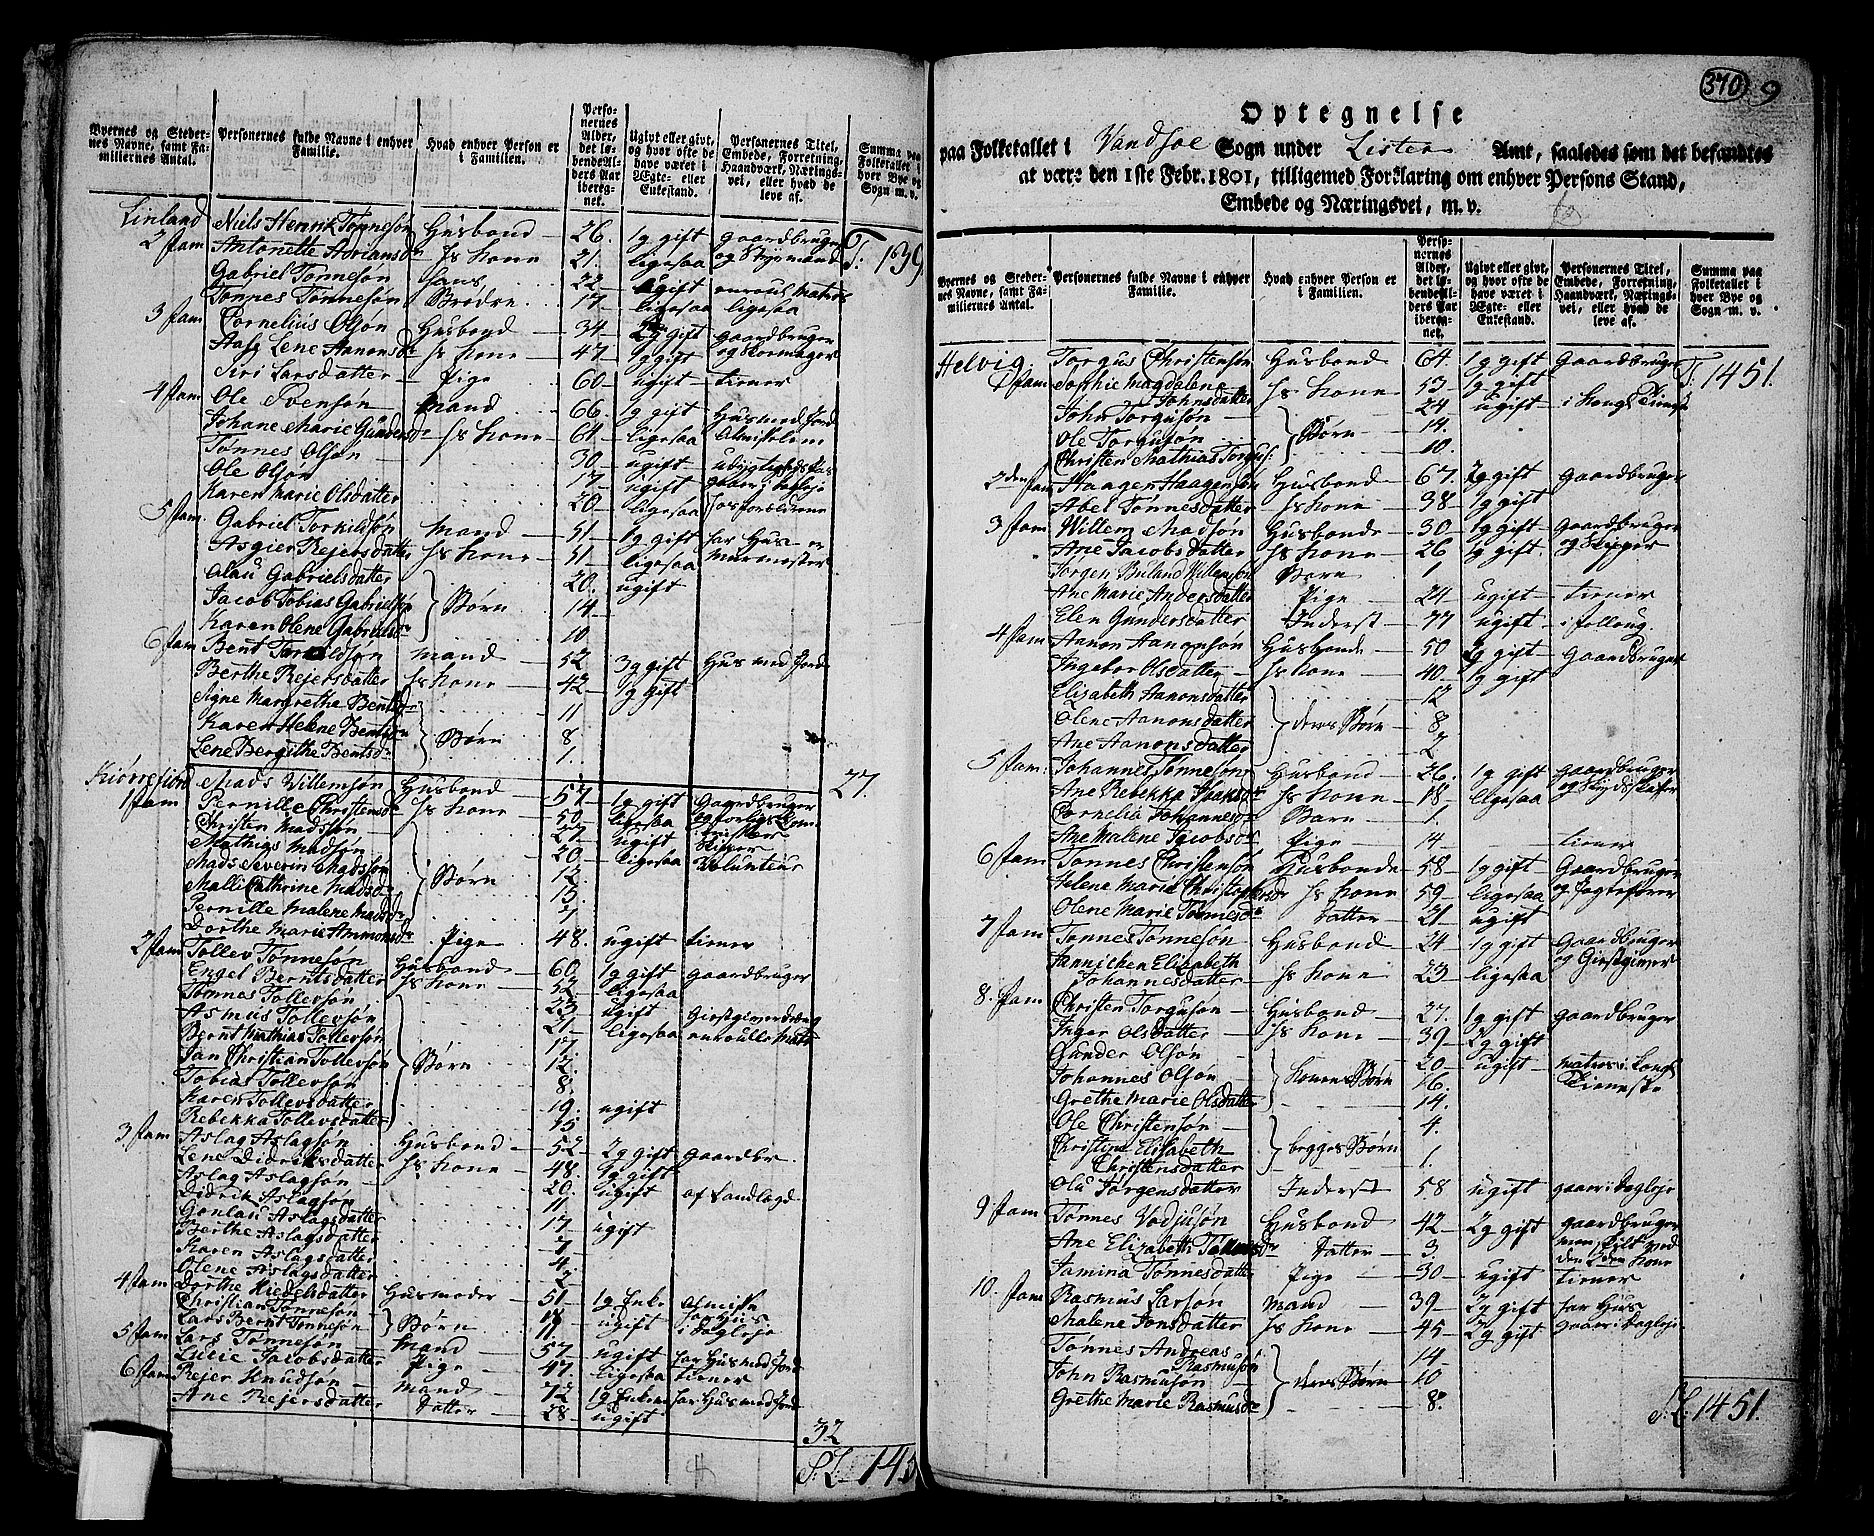 Byernes og Steder-
nes Navne, samt Fa-
miliernes Antal.
Personernes fulde Navne i enhver
Familie.
Hvad enhver Person er
i Familien.
Perso-
nernes
Alder,
det lø-
bende Al-
ders Aar
iberegnet.
Ugivt eller givt,
og hvor ofte de
have været i
Ægte- eller
Enkestand.
Personernes Titel,
Embede, Forretning,
Haandværk, Nærings-
vei, eller hvad de
leve af.
Summa paa
Folketallet i
hver Bye og
Sogn m. v.
Linland Niels Henrik Tønnesøn Husbond 26 1g gift gaardbruger
2 fam Antonette Adriansdr hs Kone 21 ligesaa og Styrmand T: 139
Gabriel Tønnesøn hans 22 ugift
Tønnes Tønnesøn Brødre 17 ligesaa ligesaa
3 fam Cornelius Olsøn Husbond 34 2g gift gaardbruger
Aase Lene Aanonsdr hs Kone 47 1g gift og Skomager
Siri Larsdatter Pige 60 ugift tiener
4 fam Ole Svensøn Mand 66 1g gift Husmed Jord
Johane Marie Gundersdr hs Kone 61 ligesaa
Tønnes Olsøn 30 ugift
Ole Olsøn 17 ugift
Karen Marie Olsdatter 20 ligesaa hos forældrene
5 fam Gabriel Torkildsøn Mand 51 1g gift har Hus er
Asgier Rejersdatter hs Kone 51 ligesaa Murmester
Olau Gabrielsdatter 20 ugift
Jacob Tobias Gabrielsøn Børn 14
Karen Olene Gabrielsdr 10
6 fam Bent Torkildsøn Mand 52 3g gift Hus med Jord
Berthe Rejersdatter hs Kone 42 1g gift
Signe Margrethe Bentsdr 11
Karen Helene Bentsdr Børn 8
Lene Bergithe Bentsdr 1
Kiørrefiord Mads Villemsøn Husbond 57 1g gift Gaardbruger 27.
1 fam Pernille Christensdr hs Kone 50 ligesaa
Christen Madssøn 27 ugift Skipper
Mathias Madsøn 20 ligesaa Volunteur
Mads Severin Madssøn Børn 12
Malli Cathrine Madsdr 15
Pernille Malene Madsdr 7
Dorthe Marie Ammonsdr Pige 48 ugift tiener
2 fam Tollev Tønnesøn Husbond 60 1g gift gaardbruger
Engel Berntsdatter hs Kone 52 ligesaa
Tønnes Tollevsøn 23 ugift
Asmus Tollevsøn 21 ligesaa
Bernt Mathias Tollevsøn 17
Jan Christian Tollevsøn Børn 12
Tobias Tollevsøn 8
Karen Tollevsdatter 19 ugift
Rebekka Tollevsdatter 15
3 fam Aslag Aslagsøn Husbond 52 2g gift gaardbr.
Lene Didriksdatter hs Kone 48 1g gift
Aslag Aslagsøn 20 ugift af Landlagd
Didrik Aslagsøn 11
Gonlau Aslagsdatter 17 ugift
Berthe Aslagsdatter 7
Karen Aslagsdatter 4
Olene Aslagsdatter 2
4 fam Dorthe Hiedelsdatter Husmoder 51 1g Enke
Christian Tønnesøn ugift
Lars Bernt Tønnesøn Børn 11 i Dagleje
5 fam Lars Tønnesøn Mand 57 ugift har Hus med Jord
Lucie Jacobsdatter Pige 47 ligesaa tiener
6 fam Rejer Knudsøn Mand 72 1g Enkem har Hus med Jord
Ane Rejersdatter Datter 28 ugift
32
S: L: 145
370 9
Optegnelse
paa Folketallet i Vandsøe Sogn under Lister Amt, saaledes som det befandtes
at være den 1ste Febr. 1801, tilligemed Forklaring om enhver Persons Stand,
Embede og Næringsvei, m. v.
Byernes og Steder-
nes Navne, samt Fa-
miliernes Antal.
Personernes fulde Navne i enhver
Familie.
Hvad enhver Person er
i Familien.
Perso-
nernes
Alder,
det lø-
bende Al-
ders Aar
iberegnet.
Ugivt eller givt,
og hvor ofte de
have været i
Ægte- eller
Enkestand.
Personernes Titel,
Embede, Forretning,
Haandværk, Nærings-
vei, eller hvad de
leve af.
Summa paa
Folketallet i
hver Bye og
Sogn m. v.
Helvig Torgus Christensøn Husbond 64 1g gift Gaardbruger T: 1451.
1 fam Sophie Magdalene
Johnsdatter hs Kone 53 1g gift
John Torgusøn 24 ugift i Kongs Tieneste
Ole Torgusøn Børn 14
Christen Mathias Torgus: 10
2den fam Haagen Haagensøn Husbond 67 2g gift gaardbruger
Abel Tønnesdatter hs Kone 38 1g gift
3 fam Willem Madsøn Husbonde 30 1g gift gaardbruger
Ane Jacobsdatter hs Kone 26 1g gift og Skipper
Jørgen Buland Willemsøn Barn 1
Ane Marie Andersdatter Pige 24 ugift tiener
Elen Gundersdatter Inderst 77 ugift
4 fam Aanon Aanonsøn Husbonde 50 2g gift Gaardbruger
Ingebor Olsdatter hs Kone 40 1g gift
Elizabeth Aanonsdatter 12
Olene Aanonsdatter deres Børn 8
Ane Aanonsdatter 2
5 fam Johannes Tønnesøn Husbond 26 1g gift gaardbruger
Ane Rebekka Isaksdr hs Kone 18 ligesaa
Cornelia Johannesdr Barn 1
Ane Malene Jacobsdr Pige 14 tiener
6 fam Tønnes Christensøn Husbonde 58 1g gift Gaardbruger
Helene Marie Christophersdr hs Kone 59 ligesaa
Olene Marie Tønnesdr Datter 21 ugift
7 fam Tønnes Tønnesøn Husbond 24 1g gift Gaardbruger
Jannichen Elizabeth og Giestgiver
Johannesdatter hs Kone 23 ligesaa
8. fam Christen Torgusøn Husbond 27 1g gift gaardbruger
Inger Olsdatter hs Kone 39 2g gift
Gunder Olsøn 20 ugift Matros i Kongs
Johannes Olsøn Konens Børn 16 Tieneste
Grethe Marie Olsdatter 14
Ole Christensøn 4
Christine Elisabeth
Christensdatter begges Børn 1
Olu Jørgensdatter Inderst 58 ugift gaaer i Dagleje
9 fam Tønnes Vodjusøn Husbond 42 2g gift gaardbruger
Ane Elizabeth Tønnesdr Datter 3
Jamina Tønnesdatter Pige 30 ugift tiener
10. fam Rasmus Larsøn Mand 39 2g gift har Hus
Malene Jonsdatter hs Kone 45 2g gift gaaer i Dagleje
Tønnes Andreas
Rasmusøn 14
John Rasmusøn deres Børn 10
Grethe Marie Rasmusdr 8
S: L 1451.